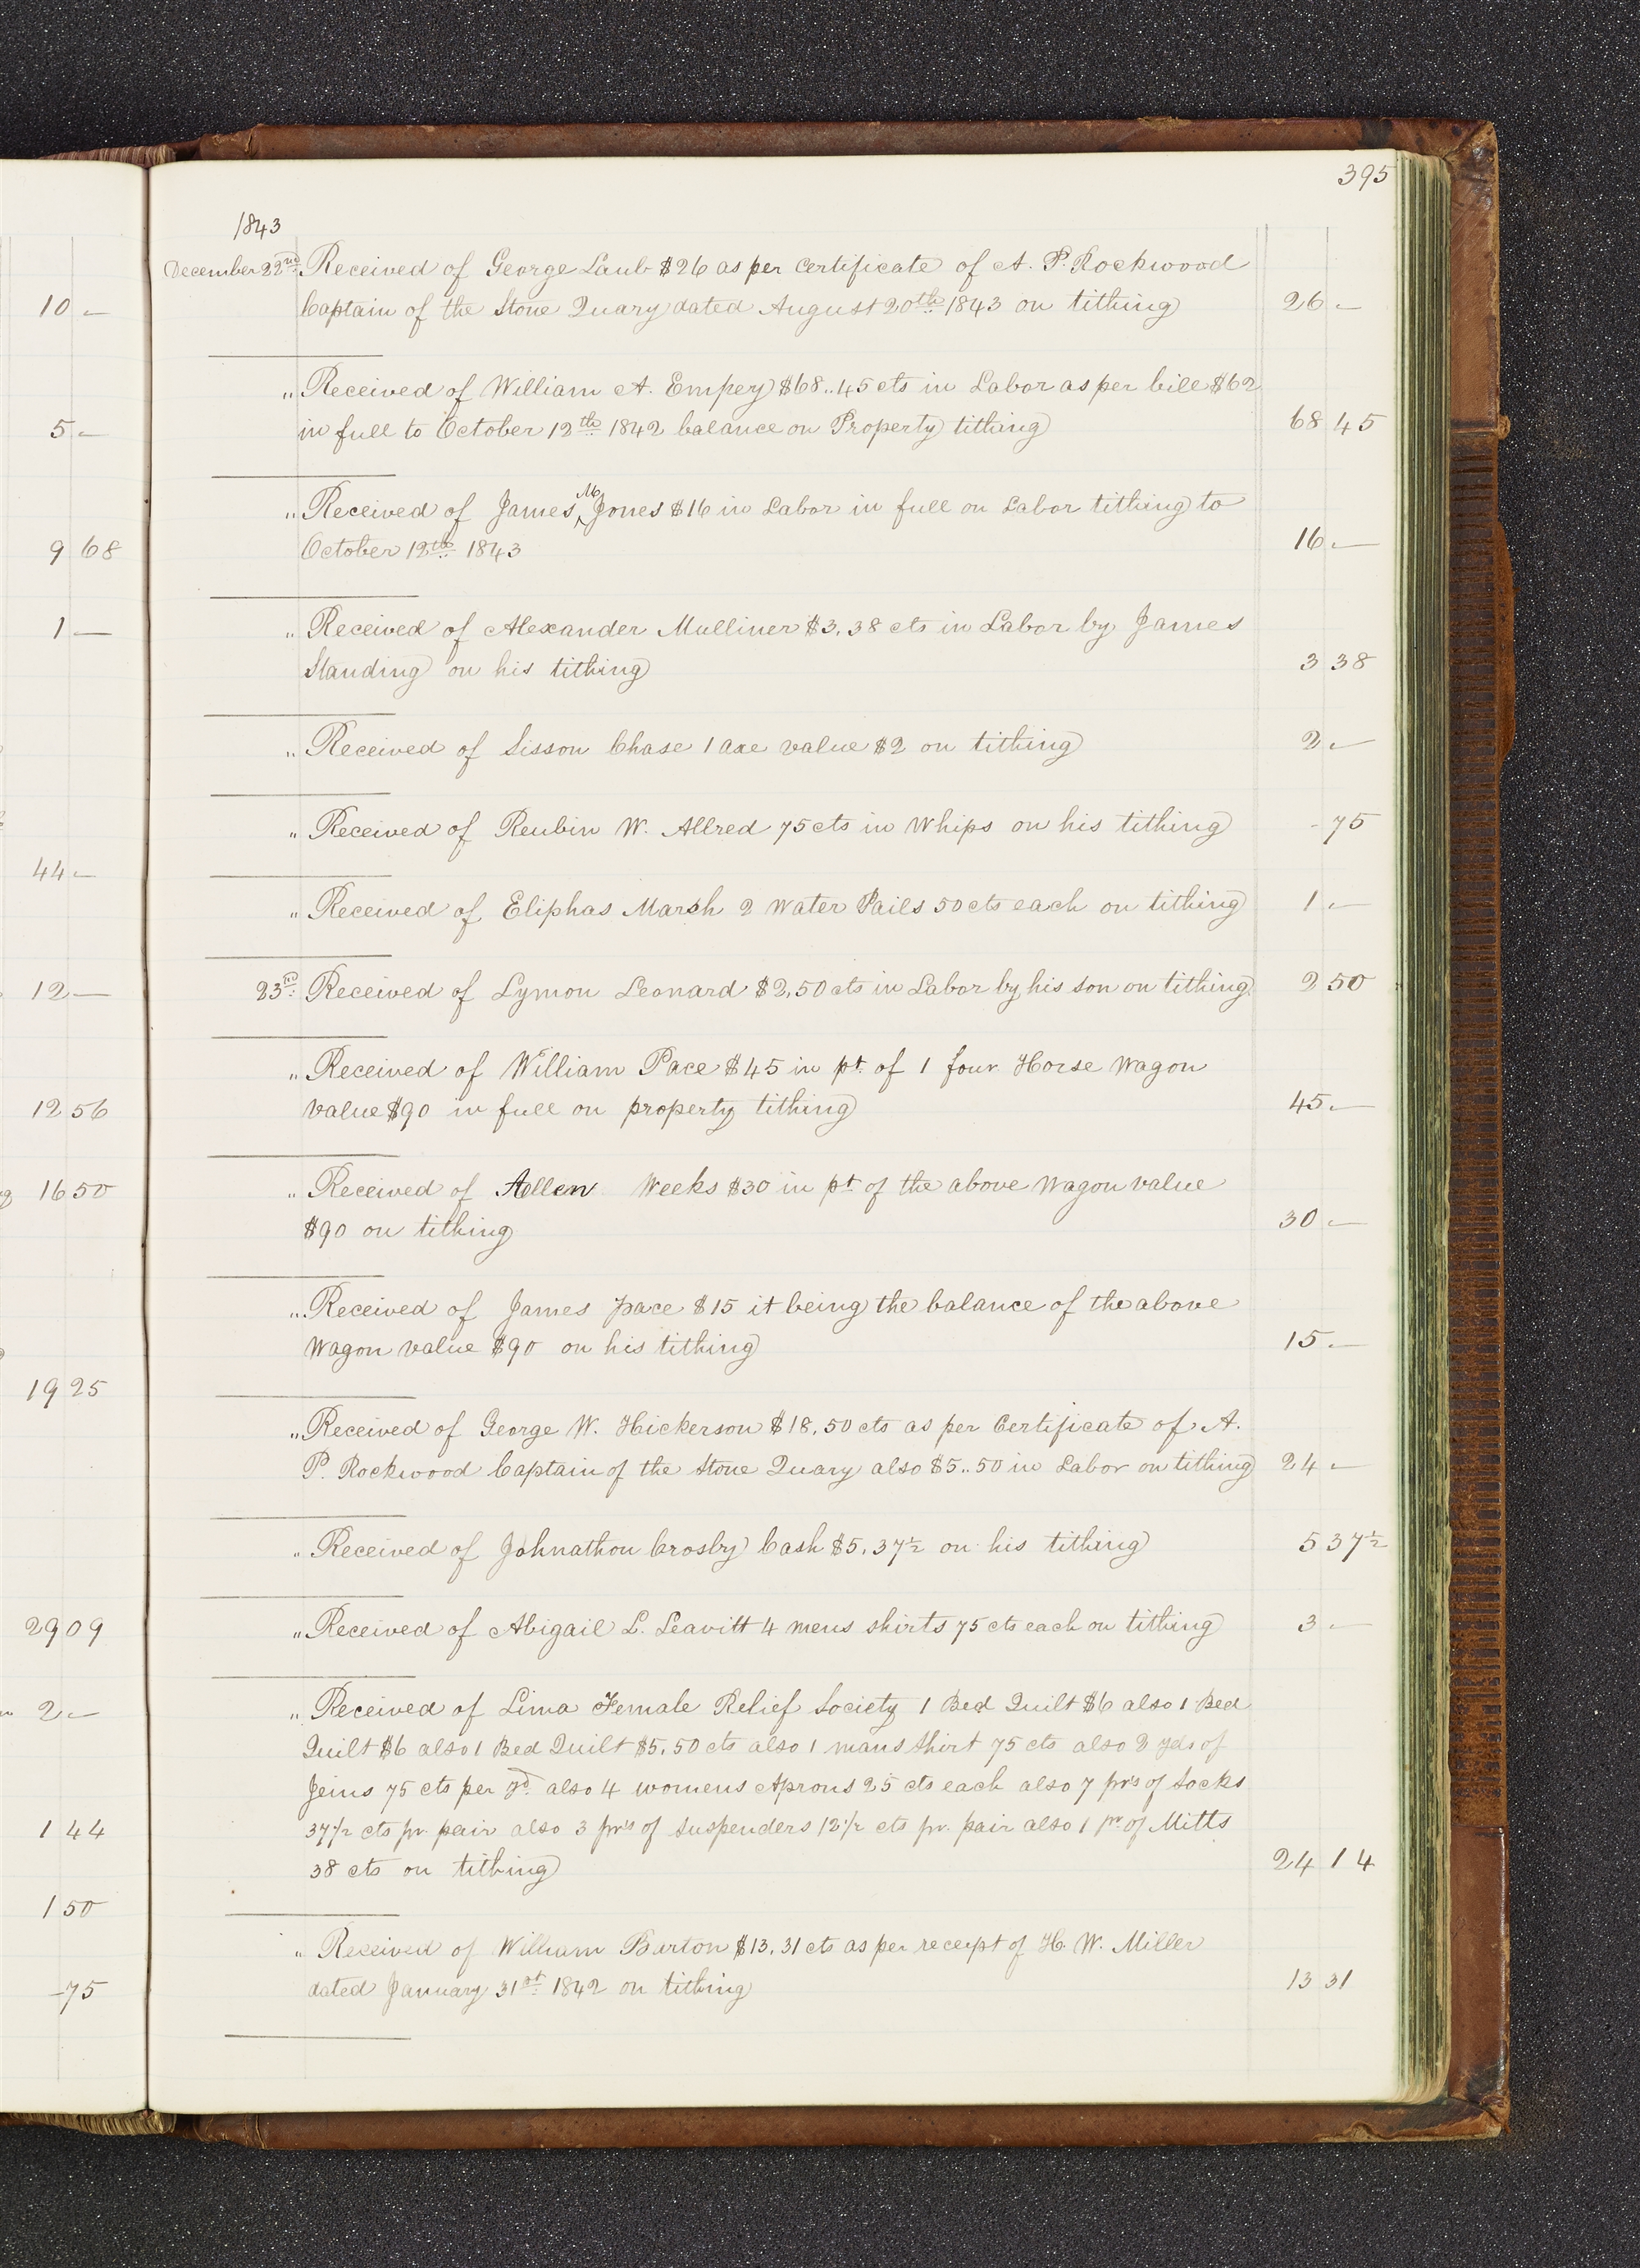 10 –
5 –
9 68
1 –
44 –
12 –
12 56
16 50
19 25
29 09
2 –
1 44
1 50
– 75
395
1843
December 22nd Received of George Laub $26 as per Certificate of A. P. Rockwood
Captain of the Stone Quary dated August 20th 1843 on tithing 26 –
" Received of William A. Empey $68..45 cts in Labor as per bill $62
in full to October 12th 1842 balance on Property tithing 68 45
" Received of James M Jones $16 in Labor in full on Labor tithing to
October 12th 1843 16 –
" Received of Alexander Mulliner $3.38 cts in Labor by James
Standing on his tithing 3 38
" Received of Sisson Chase 1 axe value $2 on tithing 2 –
" Received of Reubin W. Allred 75 cts in Whips on his tithing – 75
" Received of Eliphas Marsh 2 Water Pails 50 cts each on tithing 1 –
23rd Received of Lymon Leonard $2,50 cts in Labor by his son on tithing 2 50
" Received of William Pace $45 in pt of 1 four Horse Wagon
value $90 in full on property tithing 45 –
" Received of Allen Weeks $30 in pt of the above Wagon value
$90 on tithing 30 –
" Received of James pace $15 it being the balance of the above
Wagon value $90 on his tithing 15 –
" Received of George W. Hickerson $18,50 cts as per Certificate of A.
P. Rockwood Captain of the Stone Quary also $5..50 in Labor on tithing 24 –
" Received of Johnathon Crosby Cash $5.37½ on his tithing 5 37½
" Received of Abigail L. Leavitt 4 mens shirts 75 cts each on tithing 3 –
" Received of Lima Female Relief Society 1 Bed Quilt $6 also 1 Bed
Quilt $6 also 1 Bed Quilt $5.50 cts also 1 mans shirt 75 cts also yds of
Jeins 75 cts per yd. also 4 womens Aprons 25 cts each also 7 prs of Socks
37½ cts pr. pair also 3 prs of Suspenders 12½ cts pr. pair also 1 pr. of Mitts
38 cts on tithing 24 14
" Received of William Barton $13,31 cts as per receipt of H. W. Miller
dated January 31st 1842 on tithing 13 31